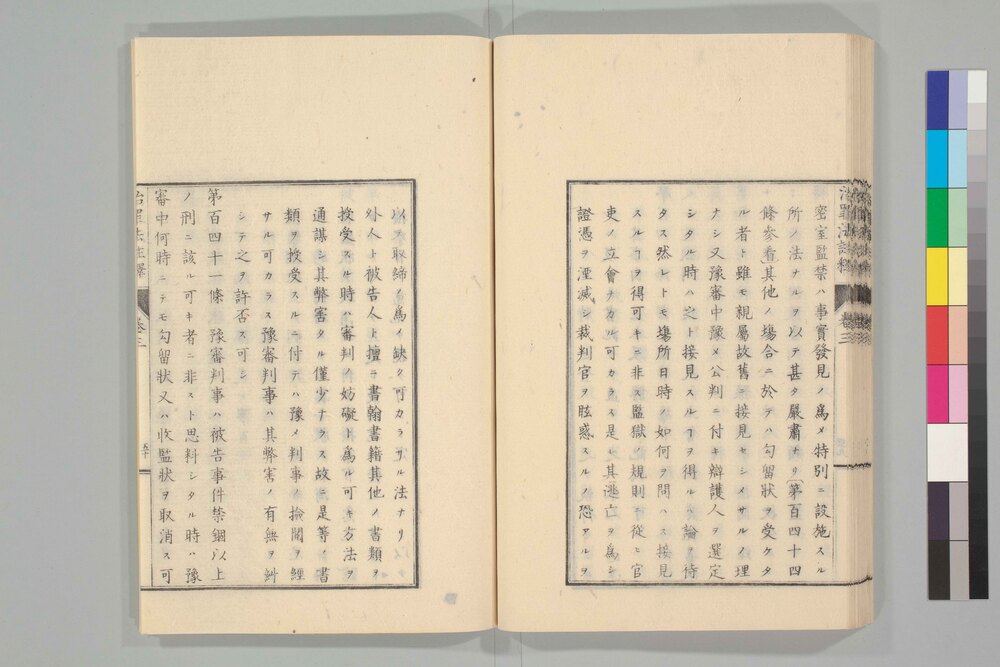 治罪法註釋 卷三
密室監禁ハ事實發見ノ爲メ特別ニ設施スル
所ノ法ナルヲ以テ甚タ嚴肅ナリ第百四十四
條參看其他ノ塲合ニ於テハ勾留狀ヲ受ケタ
ル者ト雖モ親屬故舊ニ接見セシメサルノ理
ナシ又豫審中豫メ公判ニ付キ辯護人ヲ選定
シタル時ハ之ト接見スルヿヲ得ルハ論ヲ待
タス然レトモ塲所日時ノ如何ヲ問ハス接見
スルヿヲ得可キニ非ス監獄ノ規則ニ從ヒ官
吏ノ立會ナカル可カラス是レ其逃亡ヲ爲シ
證憑ヲ湮滅シ裁判官ヲ眩惑スルノ恐アルヲ
以テ取締ノ爲メ缺ク可カラサル法ナリ
外人ト被告人ト擅ニ書翰書籍其他ノ書類ヲ
授受スル時ハ審判ノ妨礙ト爲ル可キ方法ヲ
通謀シ其弊害タル僅少ナラス故ニ是等ノ書
類ヲ授受スルニ付テハ豫メ判事ノ撿閱ヲ經
サル可カラス豫審判事ハ其弊害ノ有無ヲ糾
シテ之ヲ許否ス可シ
第百四十一條 豫審判事ハ被告事件禁錮以上
ノ刑ニ該ル可キ者ニ非スト思料シタル時ハ豫
審中何時ニテモ勾留狀又ハ收監狀ヲ取消ス可
治罪法註釋 卷三